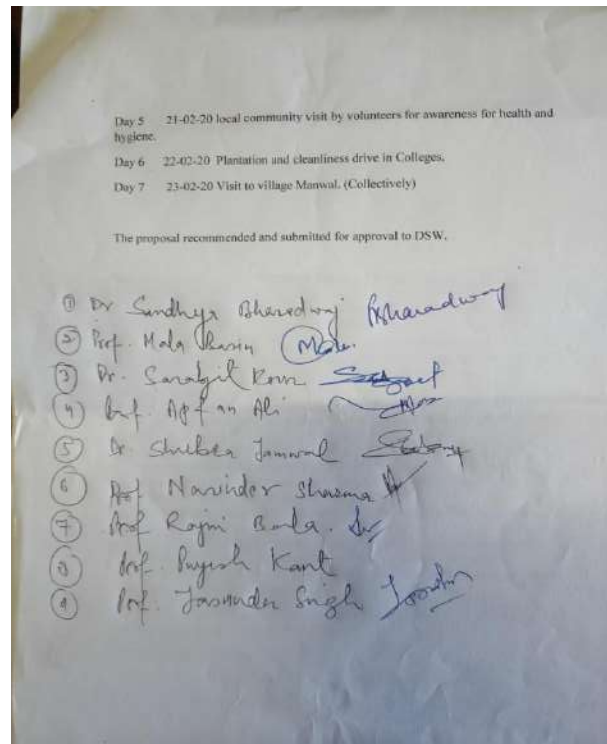 Day 5 21-02-20 local community visit by volunteers for awareness for health and
hygiene.
Day 6 22-02-20 Plantation and cleanliness drive in Colleges.
Day 7 23-02-20 Visit to village Manwal. (Collectively)
The proposal recommended and submitted for approval to DSW.
① Dr Sandhya Bharadwaj Bharadwaj
② Prof. Mala Mala
③ Dr. Sarabjit Kour
④ Prof. Ali
⑤ Dr. Jamwal
⑥ Prof Narinder Sharma
⑦ Prof Rajni Bala
⑧ Prof. Kant
⑨ Prof. Jasvinder Singh